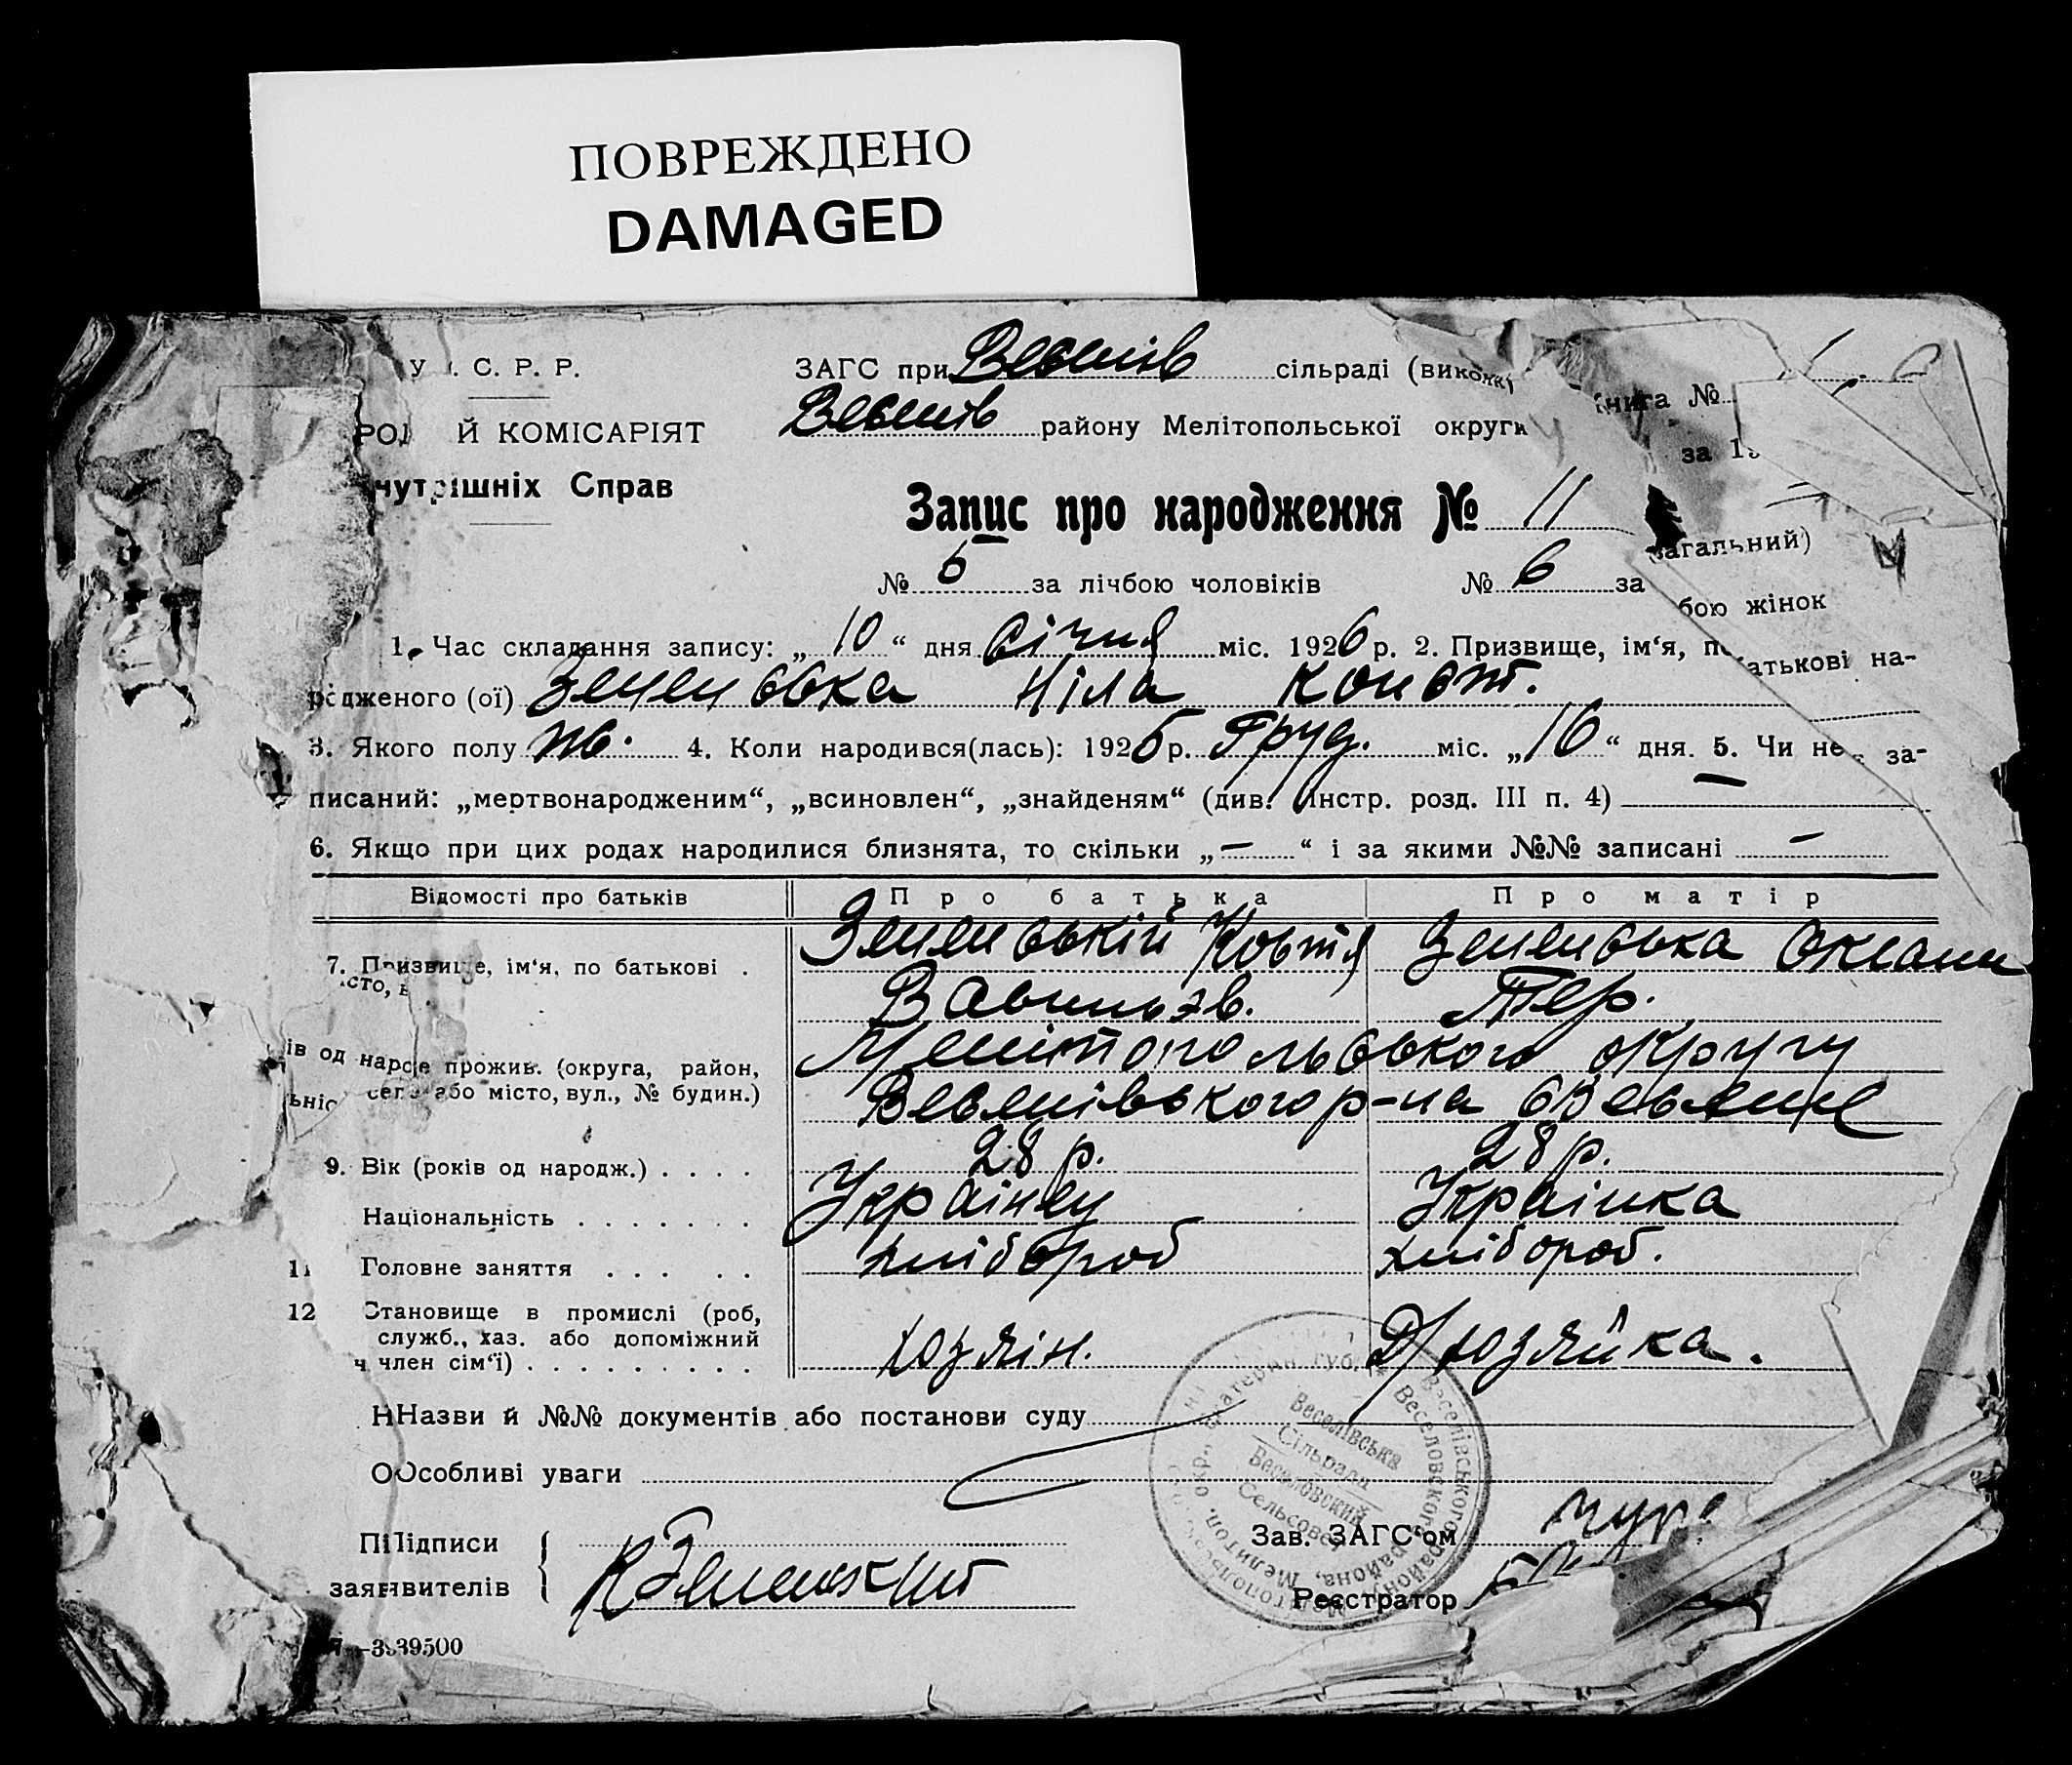 ПОВРЕЖДЕНО
DAMAGED
У . С. Р. Р.
ЗАГС при Веселів сільраді (викона
Книга №
РОД Й КОМІСАРІЯТ
Веселів району Мелітопольської округи
за 19
нутрішніх Справ
Запис про народження № 11
(загальний)
№ 5 за лічбою чоловіків № 6 за
бою жінок
1. Час складання запису: „ 10 “ дня Січня міс. 1926 р. 2. Призвище, ім‘я, по
батькові на-
родженого (ої) Зеленська Ніла Конст.
3. Якого полу жв. 4. Коли народився(лась): 1925 р. Груд. міс. „ 16 “ дня. 5. Чи не за-
писаний: „мертвонародженим“, „всиновлен“, „знайденям“ (див. Інстр. розд. III п. 4) —
6. Якщо при цих родах народилися близнята, то скільки „ — “ і за якими №№ записані —
Відомості про батьків Про батька Про матір
7. Призвище, ім‘я, по батькові . Зеленській Костя Зеленська Оксани
Васильэв. Тер.
ів од наро прожив. (округа, район, Мелітопольського округу
село або місто, вул., № будин.) Веселівського р-на с Веселе
9. Вік (років од народж.) . . . . 28 р. 28 р.
Національність . . . . . . . Українец Українка
11 Головне заняття . . . . . хлібороб хлібороб.
12 Становище в промислі (роб,
служб., хаз. або допоміжний
член сім‘ї) . . . . . . . . . хозяін. Д/хозяйка.
Назви й №№ документів або постанови суду
Особливі уваги
Веселівська
Сільрада
Веселовский
Сельсовет
Підписи
заявителів
Зав. ЗАГС‘ом
Реєстратор
-3939500